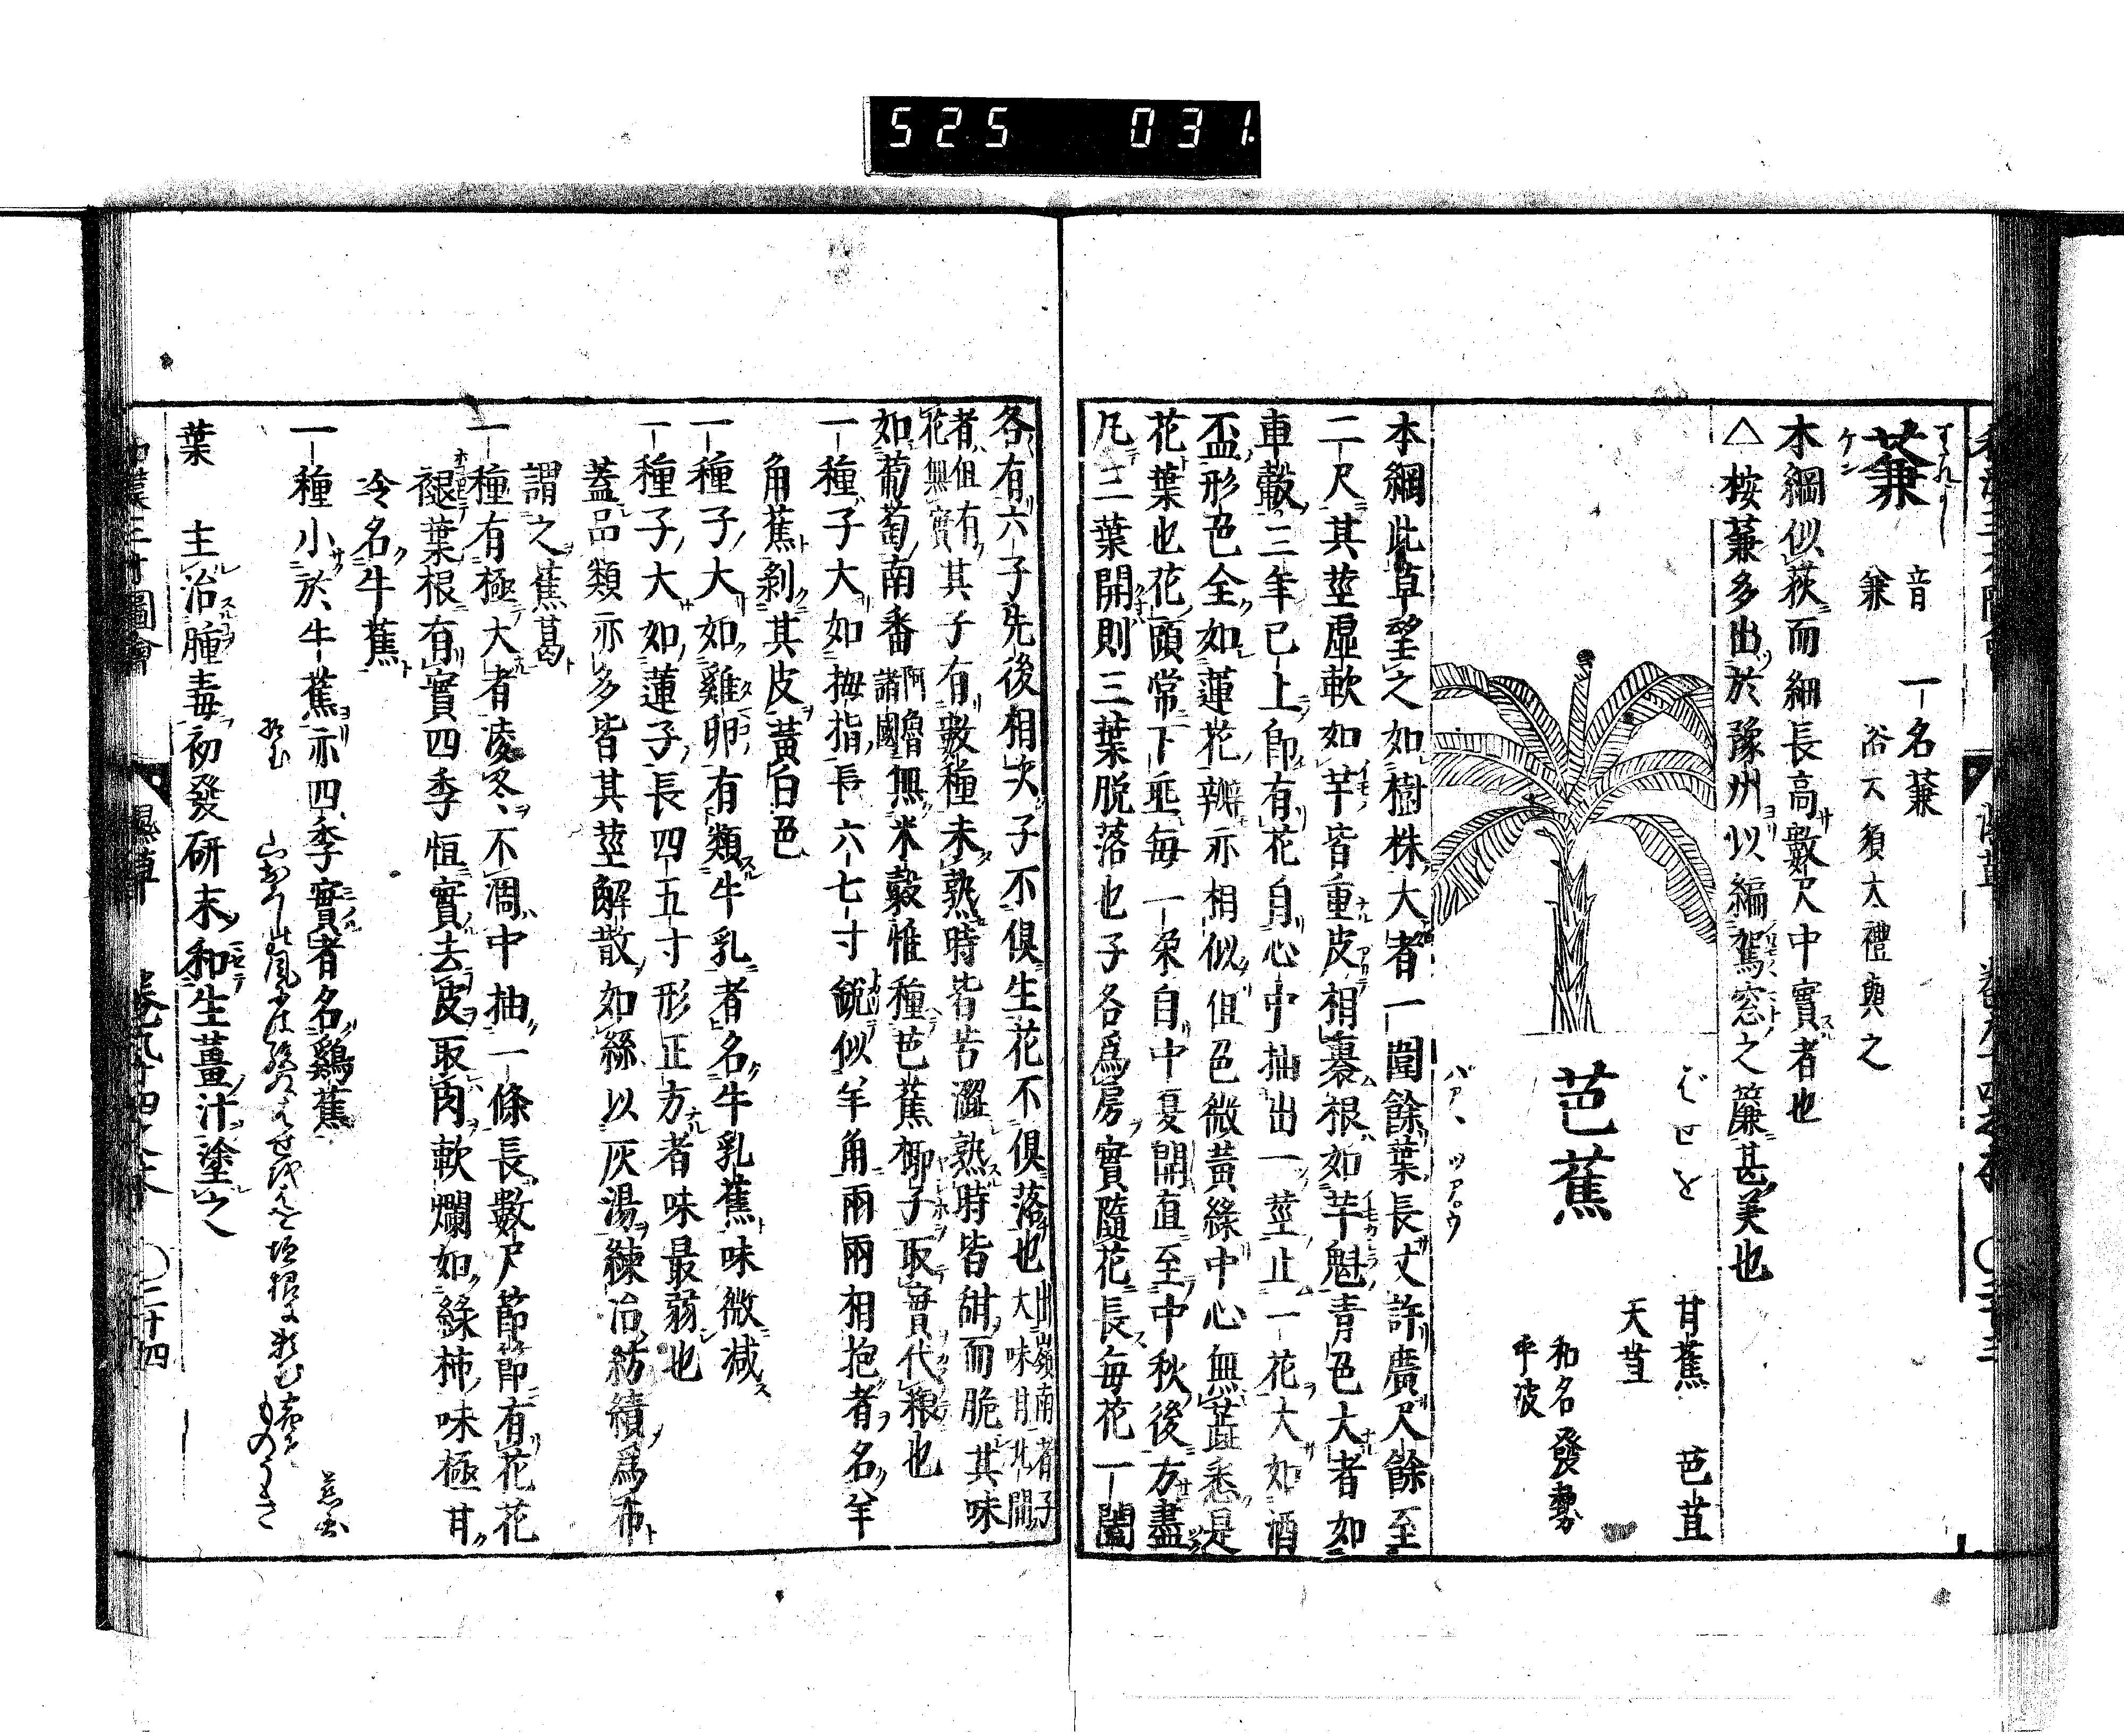 525 031
蒹 音兼
一名蒹
俗云須太禮與之
ケン
本綱似荻而細長高數尺中實者也
△按蒹多出於豫州以編駕窓之簾甚美也
芭蕉
ばせを
甘蕉 芭苴
天苴
和名發勢
乎波
本綱此草望之如樹株大者一圍餘葉長丈許廣尺餘至
二尺其莖虛軟如芋皆重皮相裹根如芋魁青色大者如
車轂三年已上卽有花自心中抽出一莖止一花大如酒
盃形色全如蓮花瓣亦相似但色微黃綠中心無蕋悉是
花葉也花頭常下垂每一朶自中夏開直至中秋後方盡
凡三葉開則三葉脱落也子各爲房實隨花長每花一闔
各有六子先後相次子不俱生花不俱落也
出嶺南者子
大味甘北閒
者但有
花無實
其子有數種未熟時皆苦澀熟時皆甜而脆其味
如葡萄南番
阿魯
諸國
無米穀惟種芭蕉椰子取實代粮也
一種子大如拇指長六七寸銳似羊角兩兩相抱者名羊
角蕉剝其皮黃白色
一種子大如雞卵有類牛乳者名牛乳蕉味微減
一種子大如蓮子長四五寸形正方者味最弱也
蓋品類亦多皆其莖解散如絲以灰湯練冶紡績爲布
謂之蕉葛
一種有極大者凌冬不凋中抽一條長數尺節節有花花
褪葉根有實四季恒實去皮取肉軟爛如綠柿味極甘
冷名牛蕉
一種小於牛蕉亦四季實者名鷄蕉
葉 主治腫毒初發研末和生薑汁塗之